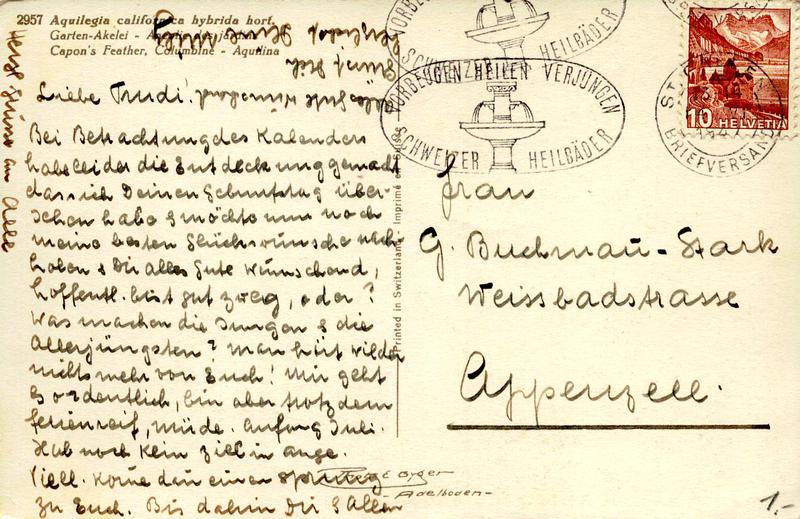 2957 Aquilegia californica hybrida hort.
Garten-Akelei -
Capon's Feather, Columbine - Aquilina
Liebe Trudi!
Bei Betrachtung des Kalenders
habe leider die Entdeckung gemacht
dass ich Deinen Geburtstag über-
sehen habe & möchte nun noch
meine besten Glückwünsche nach-
holen & Dir alles Gute wünschend,
hoffentl. bist gut zweg, oder?
Was machen die Jungen & die
Allerjüngsten? Man hört wieder
nichts mehr von Euch! Mir geht
es ordentlich, bin aber trotzdem
ferienreif, müde. Anfang Juli.
Hab noch kein Ziel in auge.
Viell. kome dan einen sprung
zu Euch. Bis dahin Dir & Allen
Herzl. Grüsse an Alle
Printed in Switzerland - Imprimé en Suisse
Gyger
- Adelboden -
VORBEUGEN HEILEN VERJÜNGEN
SCHWEIZER HEILBÄDER
VORBEUGEN HEILEN VERJÜNGEN
SCHWEIZER HEILBÄDER
10 HELVETIA
BRIEFVERSAND
Frau
G. Buchmau-Stark
Weissbadstrasse
Appenzell.
1.-